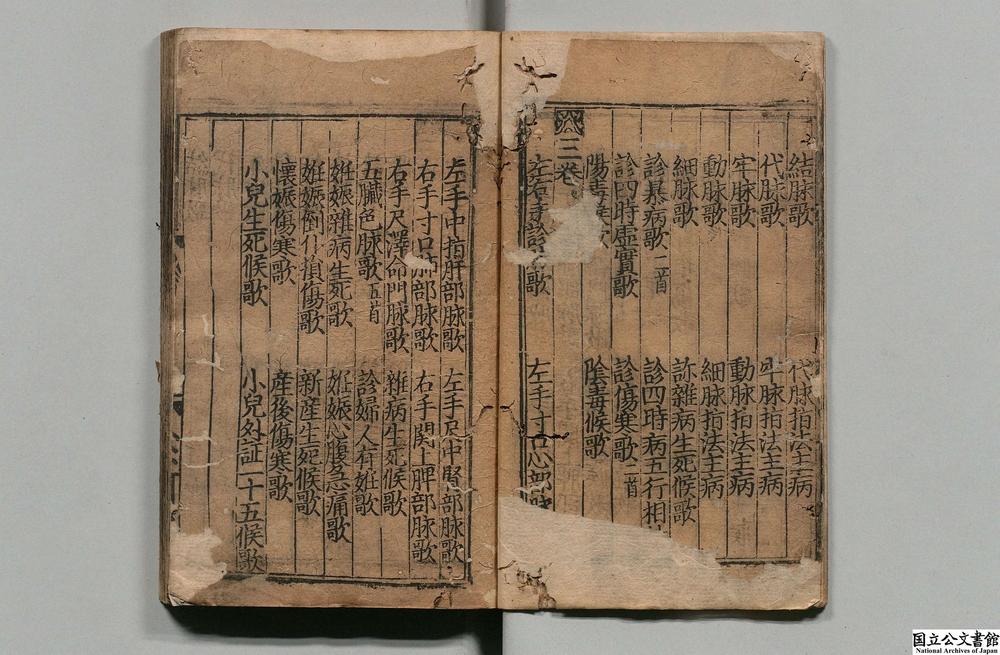 結脉歌　代脉指法主病
代脉歌　牢脉指法主病
牢脉歌　動脉指法主病
動脉歌　細脉指法主病
細脉歌　診雜病生死候歌
診暴病歌二首　診四時病五行相
診四時虛實歌　診傷寒歌二首
陽毒候歌　陰毒候歌
三卷
左右手診脉歌　左手寸口心部脉
左手中指肝部脉歌　左手尺中腎部脉歌
右手寸口肺部脉歌　右手関上脾部脉歌
右手尺澤命門脉歌　雜病生死候歌
五臟色脉歌五首　診婦人有妊歌
妊娠雜病生死歌　妊娠心腹急痛歌
妊娠倒仆損傷歌　新産生死候歌
懷娠傷寒歌　産後傷寒歌
小兒生死候歌　小兒外証一十五候歌
国立公文書館
National Archives of Japan